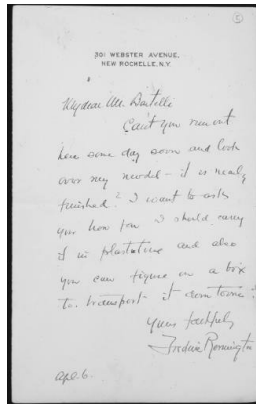 5
301 WEBSTER AVENUE,
NEW ROCHELLE, N.Y.
My dear Mr.
Can't you run out
here some day soon and look
over my model - it is nearly
finished? I want to ask
you how far I should carry
it in plastaline and also
you can figure on a box
to transport it down town?
Yours faithfully
Frederic Remington
Apl. 6.